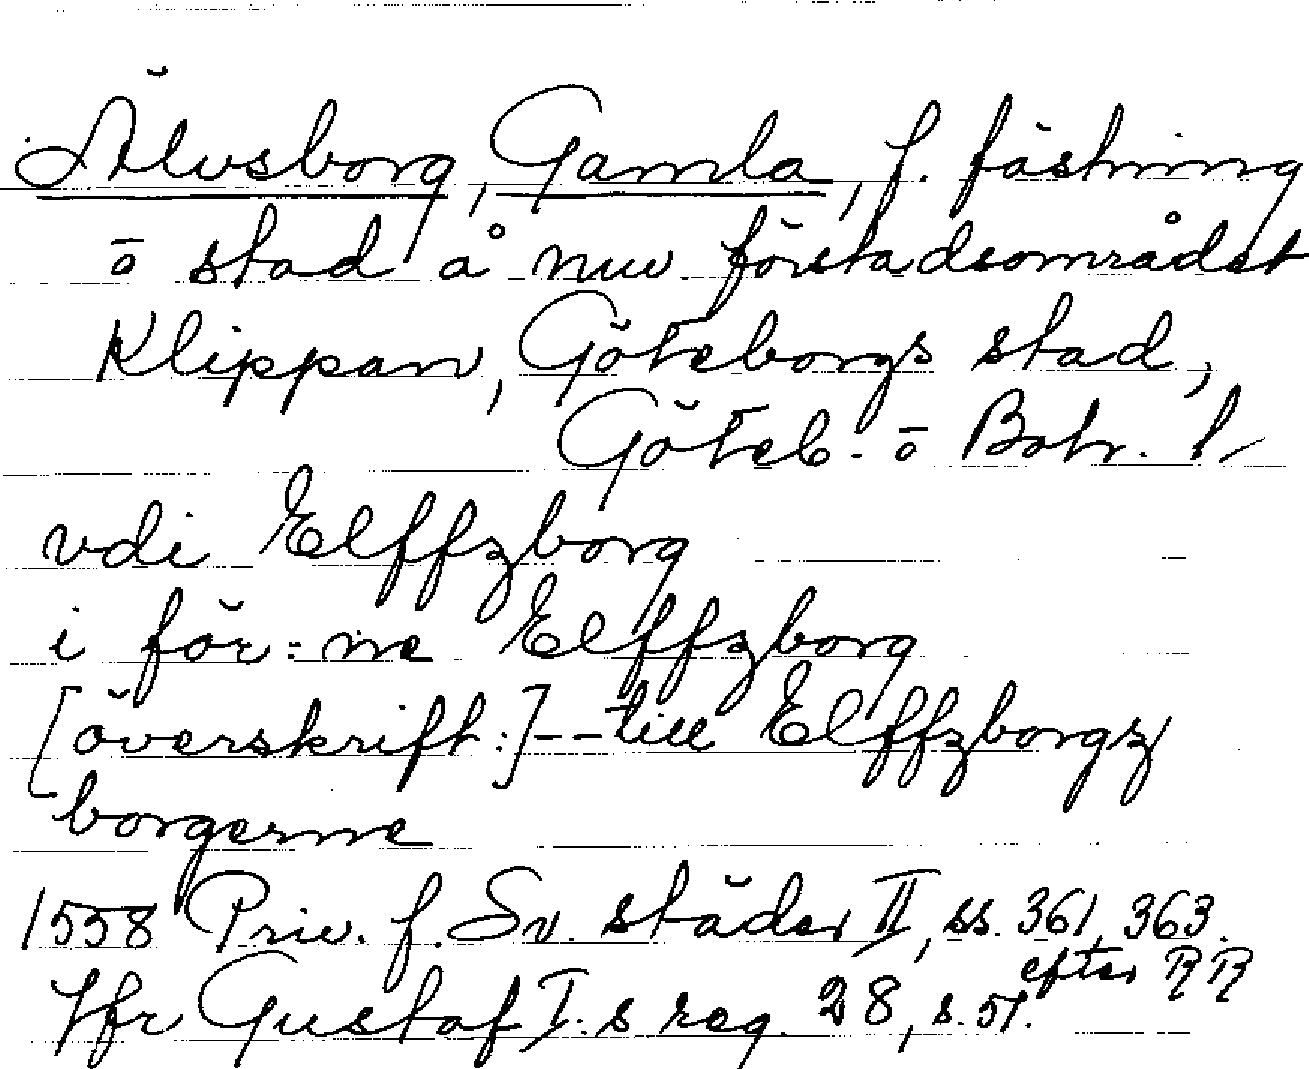 Älvsborg, Gamla, f. fästning
o stad å nuv. förstadsområdet
Klippan, Göteborgs stad,
Göteb. o Boh. l.
vdi Elffzborg
i för:ne Elffzborg
[överskrift:]--till Elffzborgz
borgerne
1558 Priv. f. Sv. städer II, ss. 361, 363.
efter RR
Jfr Gustaf I:s reg. 28, s. 51.